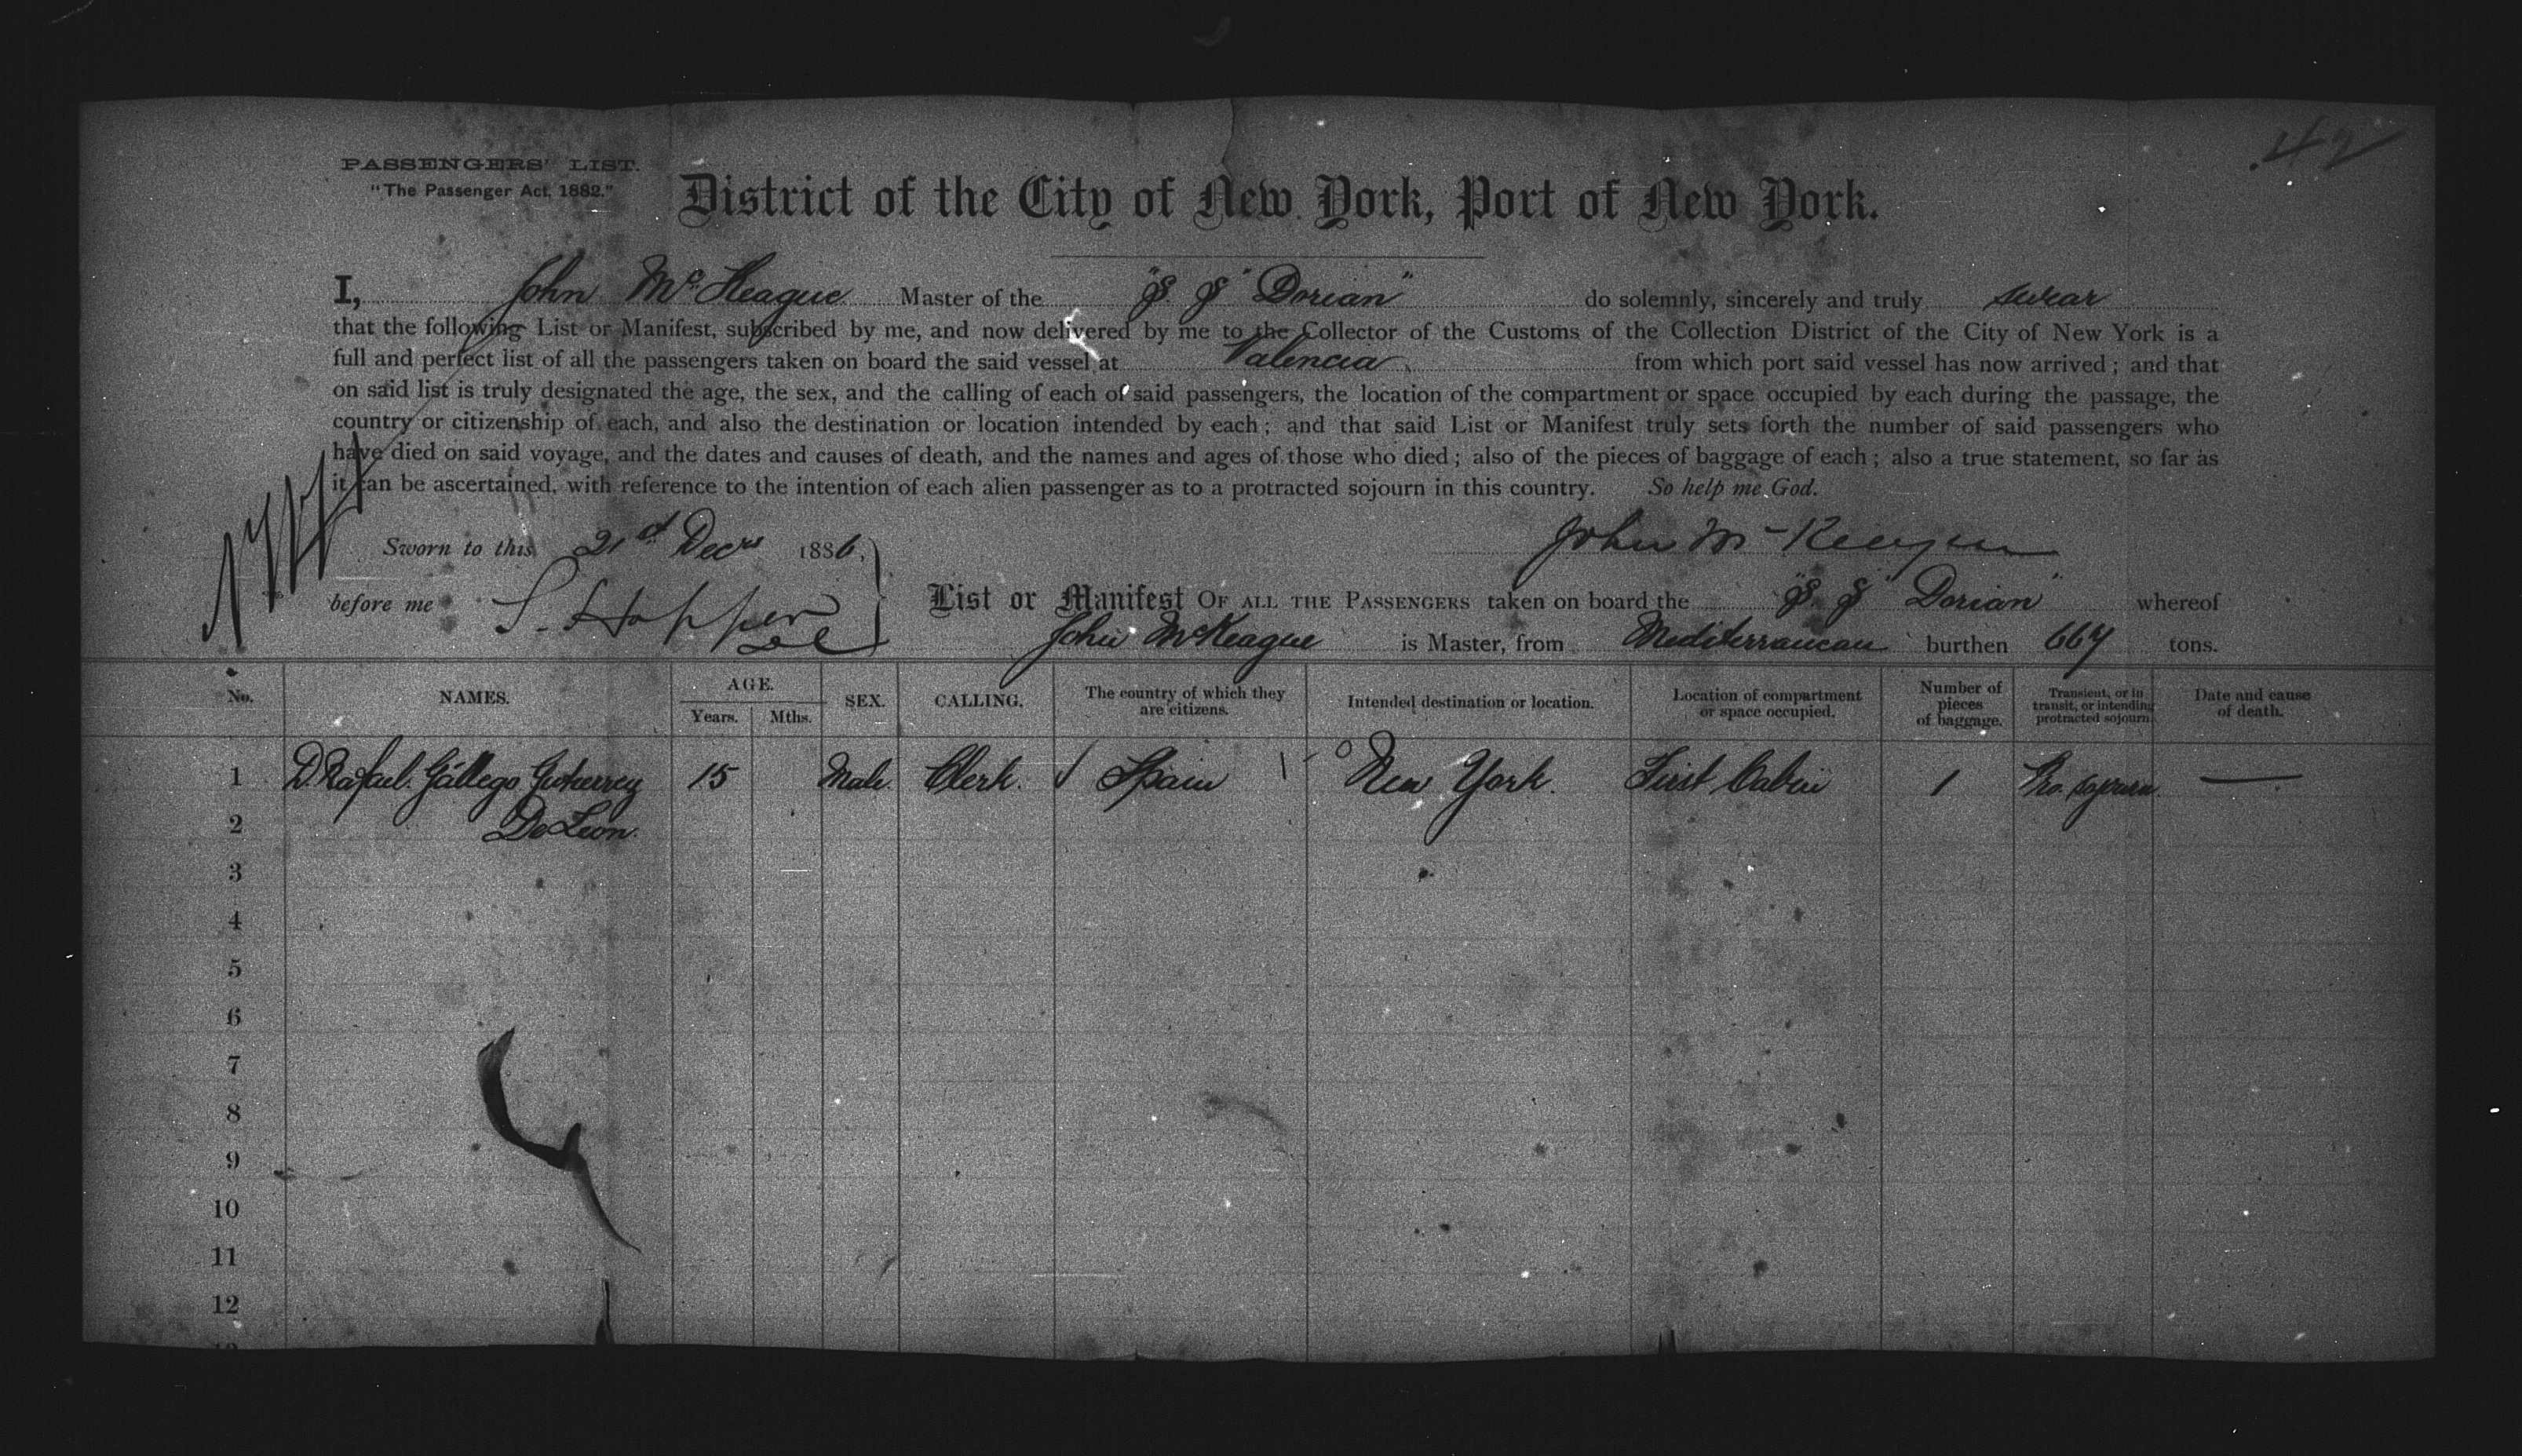 42
PASSENGERS' LIST.
"The Passenger Act, 1882."
District of the City of New York, Port of New York.
I, John McKeague Master of the "S. S "Dorian" do solemnly, sincerely and truly swear
that the following List or Manifest, subscribed by me, and now delivered by me to the Collector of the Customs of the Collection District of the City of New York is a
full and perfect list of all the passengers taken on board the said vessel at Valencia from which port said vessel has now arrived; and that
on said list is truly designated the age, the sex, and the calling of each of said passengers, the location of the compartment or space occupied by each during the passage, the
country or citizenship of each, and also the destination or location intended by each; and that said List or Manifest truly sets forth the number of said passengers who
have died on said voyage, and the dates and causes of death, and the names and ages of those who died; also of the pieces of baggage of each; also a true statement, so far as
it can be ascertained, with reference to the intention of each alien passenger as to a protracted sojourn in this country. So help me God.
Sworn to this 21st Decr 1886, John McKeague
before me S. Hopper
List or Manifest OF ALL THE PASSENGERS taken on board the "S. S "Dorian" whereof
John McKeague is Master, from Mediterranean burthen 667 tons.
No. NAMES. AGE. Years. Mths. SEX. CALLING. The country of which they are citizens. Intended destination or location. Location of compartment or space occupied. Number of pieces of baggage. Transient, or in transit, or intending protracted sojourn. Date and cause of death.
1 D. Rafael Gállego Gutierrez 15 Male. Clerk. Spain New York. First Cabin 1 Pro. sojourn —
2 De Leon.
3
4
5
6
7
8
9
10
11
12